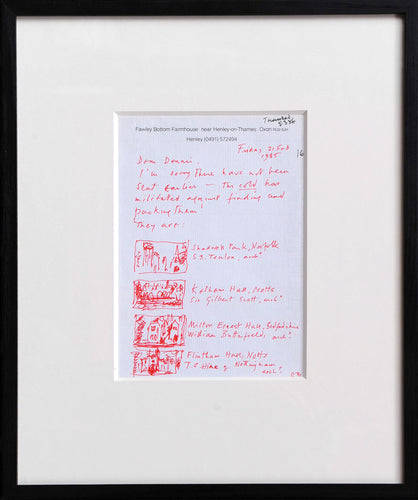 Fawley Bottom Farmhouse near Henley-on-Thames Oxon
Henley (0491) 572494
Friday, 21 Feb
1985
16
Dear Dennis,
I'm sorry these have not been
sent earlier – The cold has
militated against finding and
packing them!
They are:
Shadwell Park, Norfolk
S.S. Teulon, archt
Kelham Hall, Notts
Sir Gilbert Scott, archt
Milton Ernest Hall, Bedfordshire
William Butterfield, archt
Flintham Hall, Notts
T.C. Hine of Nottingham
archt